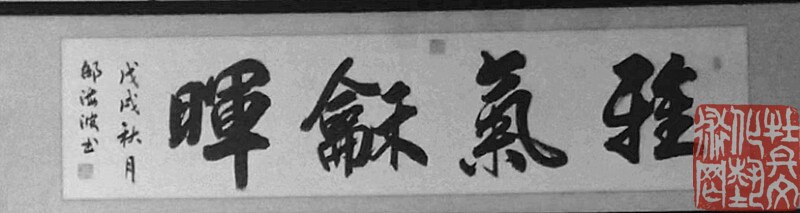 雅氣龢暉
戊戌秋月
海波书